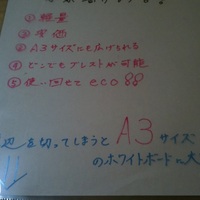 ① 軽量
② 安価
③ A3サイズにも広げられる
④ どこでもブレストが可能
⑤ 使い回せて eco
辺を切ってしまうと A3 サイズ
のホワイトボードに大